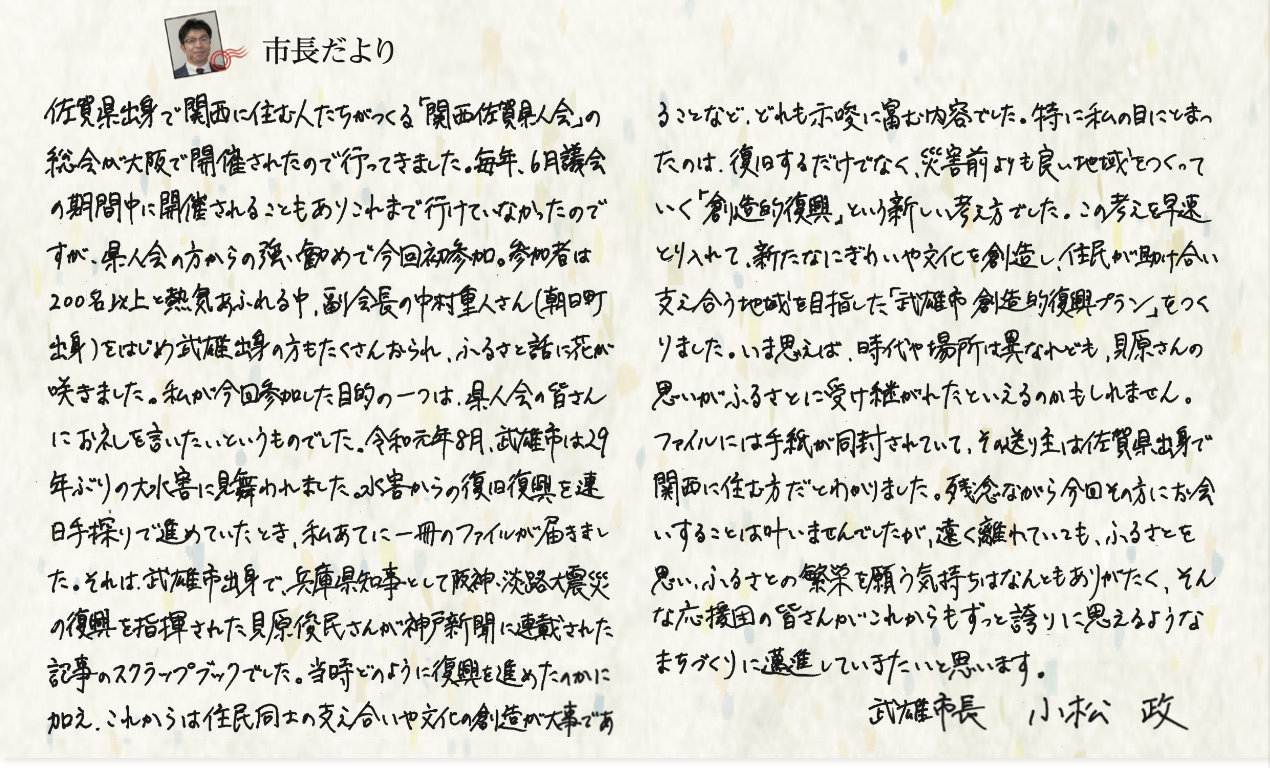 市長だより
佐賀県出身で関西に住む人たちがつくる「関西佐賀県人会」の
総会が大阪で開催されたので行ってきました。毎年、6月議会
の期間中に開催されることもありこれまで行けていなかったので
すが、県人会の方からの強い勧めで今回初参加。参加者は
200名以上と熱気あふれる中、副会長の中村重人さん(朝日町
出身)をはじめ武雄出身の方もたくさんおられ、ふるさと話に花が
咲きました。私が今回参加した目的の一つは、県人会の皆さん
にお礼を言いたいというものでした。令和元年8月、武雄市は29
年ぶりの大水害に見舞われました。水害からの復旧復興を連
日手探りで進めていたとき、私あてに一冊のファイルが届きまし
た。それは、武雄市出身で、兵庫県知事として阪神・淡路大震災
の復興を指揮された貝原俊民さんが神戸新聞に連載された
記事のスクラップブックでした。当時どのように復興を進めたのかに
加え、これからは住民同士の支え合いや文化の創造が大事であ
ることなど、どれも示唆に富む内容でした。特に私の目にとまっ
たのは、復旧するだけでなく、災害前よりも良い地域をつくって
いく「創造的復興」という新しい考え方でした。この考えを早速
とり入れて、新たなにぎわいや文化を創造し、住民が助け合い
支え合う地域を目指した「武雄市創造的復興プラン」をつく
りました。いま思えば、時代や場所は異なれども、貝原さんの
思いがふるさとに受け継がれたといえるのかもしれません。
ファイルには手紙が同封されていて、その送り主は佐賀県出身で
関西に住む方だとわかりました。残念ながら今回その方にお会
いすることは叶いませんでしたが、遠く離れていても、ふるさとを
思い、ふるさとの繁栄を願う気持ちはなんともありがたく、そん
な応援団の皆さんがこれからもずっと誇りに思えるような
まちづくりに邁進していきたいと思います。
武雄市長 小松 政